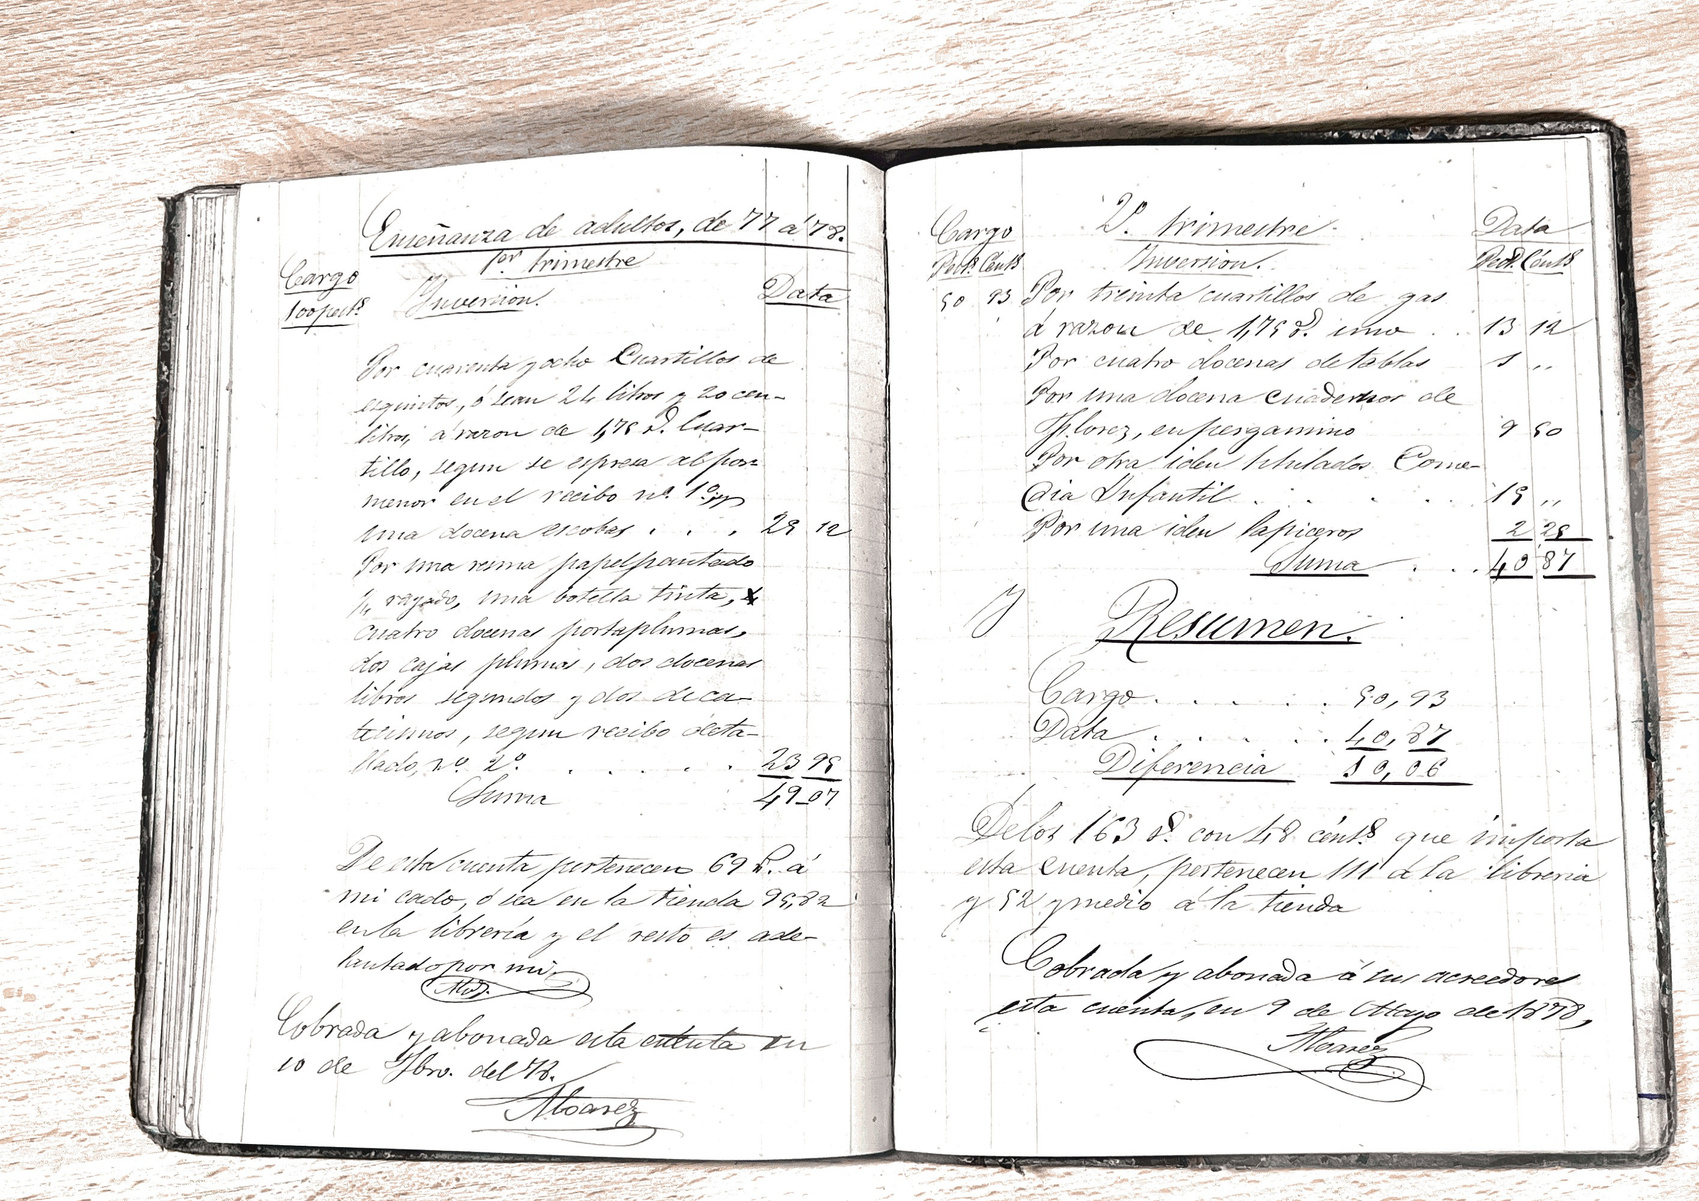 Enseñanza de adultos, de 77 á 78.
1er trimestre
Cargo
100 pets
Inversion.
Data
Por cuarenta y ocho Cuartillos de
esquistos, ó sean 24 litros y 20 cen-
litros, á razon de 1,75 r.s Cuar-
tillo, segun se espresa al por
menor en el recibo nº. 1º y
una docena escobas . . . 25 12
Por una resma papel pautado
y rayado, una botella tinta,
cuatro docenas portaplumas,
dos cajas plumas, dos docenas
libros segundos y dos de ca-
tecismos, segun recibo deta-
llado, nº. 2º. . . . . . 23 95
Suma 49-07
De esta cuenta pertenecen 69 r.s á
mi cado, ó sea en la tienda 95,82
en la librería y el resto es ade-
lantado por mi,
Cobrada y abonada esta cuenta en
10 de Fbro. del 78.
Alvarez
2º. trimestre.
Cargo
Data
Pets Cénts
Inversion.
Pets. Cénts
50 93 Por treinta cuartillos de gas
á razon de 1,75 r.s uno . . 13 12
Por cuatro docenas de tablas 1 "
Por una docena cuadernos de
Florez, en pergamino 9 50
Por otra iden titulados Come-
dia Infantil . . . . . 15 "
Por una iden lapiceros 2 25
Suma . . . 40 87
Resumen.
Cargo . . . . . . 50,93
Data . . . . . . 40,87
Diferencia 10,06
De los 163 r.s con 48 cénts que importa
esta cuenta, pertenecen 111 á la libreria
y 52 y medio á la tienda
Cobrada y abonada á sus acreedores
esta cuenta, en 9 de Mayo de 1878,
Alvarez